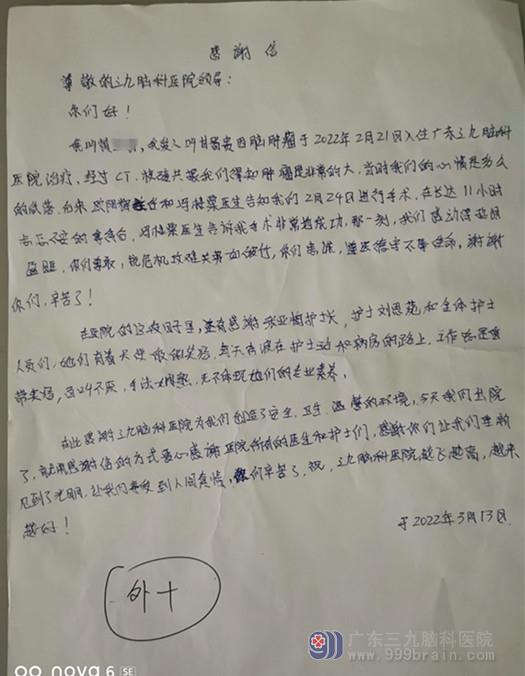 感谢信
尊敬的三九脑科医院领导:
你们好!
我叫 ，我爱人 因脑肿瘤于2022年2月21日入住广东三九脑科
医院治疗，经过CT，核磁共振我们得知肿瘤是非常的大，当时我们的心情是多么
的低落，后来欧阳辉 和 医生告知我们2月24日进行手术，在长达11小时
忐忑不安的等待后， 医生告诉我手术非常地成功，那一刻，我们感动得热泪
盈眶，你们 ，视危机攻难关 ，你们高深， 医德守不辱使命，谢谢
你们，辛苦了!
在医院的这段日子里，还有感谢 护士长，护士刘思苑和全体护士
人员们，她们有着天使般的笑容，每天奔波在护士站和病房的路上，工作总是面
带笑容， 不厌，手法娴熟，无不体现她们的专业素养，
在此感谢三九脑科医院为我们创造了安全、卫生、温馨的环境，今天我们出院
了，就用感谢信的方式衷心感谢医院所有的医生和护士们，感谢你们让我们重新
见到了光明，让我们 到人间真情，你们辛苦了，祝，三九脑科医院越飞越高，越来
越好!
于2022年3月13日
外十
nova 6 SE
广东三九脑科医院
www.999brain.com